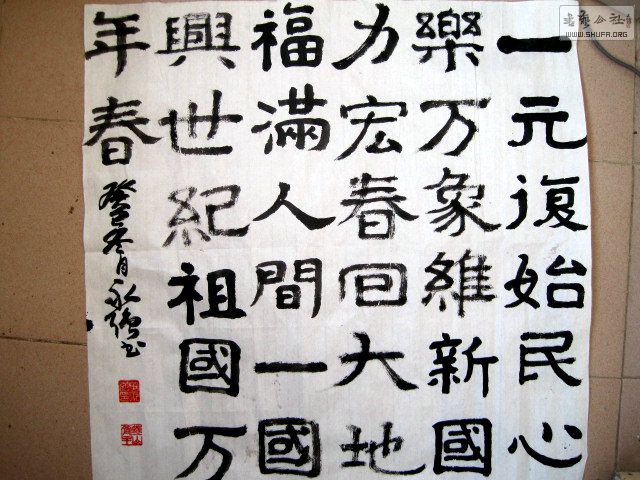 一元復始民心
樂万象維新國
力宏春回大地
福滿人間一國
興世紀祖國万
年春
冬月永强书
书艺公社
WWW.SHUFA.ORG